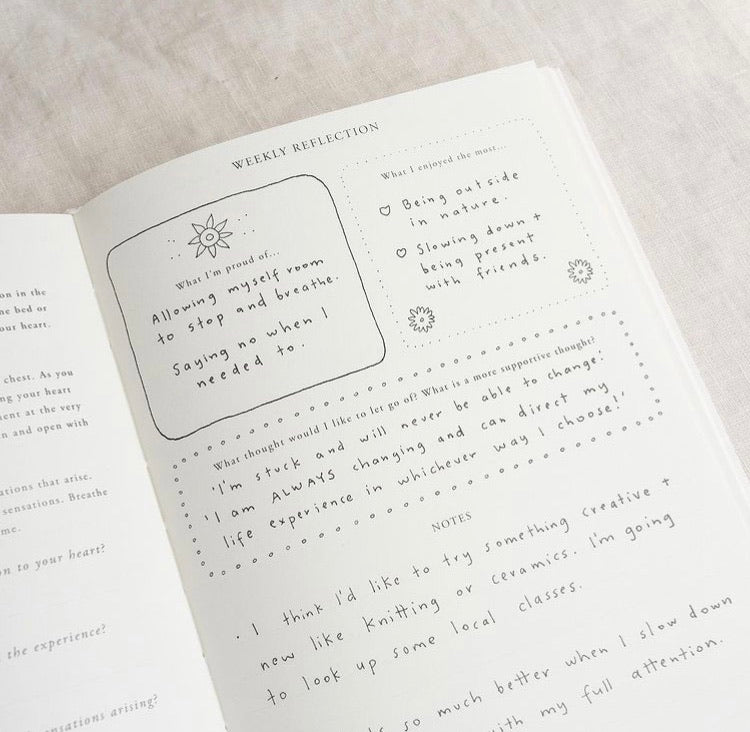 on in the
bed or
our heart.
chest. As you
ng your heart
ent at the very
n and open with
ations that arise.
sensations. Breathe
me.
n to your heart?
the experience?
ensations arising?
WEEKLY REFLECTION
What I'm proud of...
Allowing myself room
to stop and breathe.
Saying no when I
needed to.
What I enjoyed the most...
Being outside
in nature.
Slowing down +
being present
with friends.
What thought would I like to let go of? What is a more supportive thought?
'I'm stuck and will never be able to change.'
'I am ALWAYS changing and can direct my
life experience in whichever way I choose!'
NOTES
· I think I'd like to try something creative +
new like knitting or ceramics. I'm going
to look up some local classes.
so much better when I slow down
with my full attention.